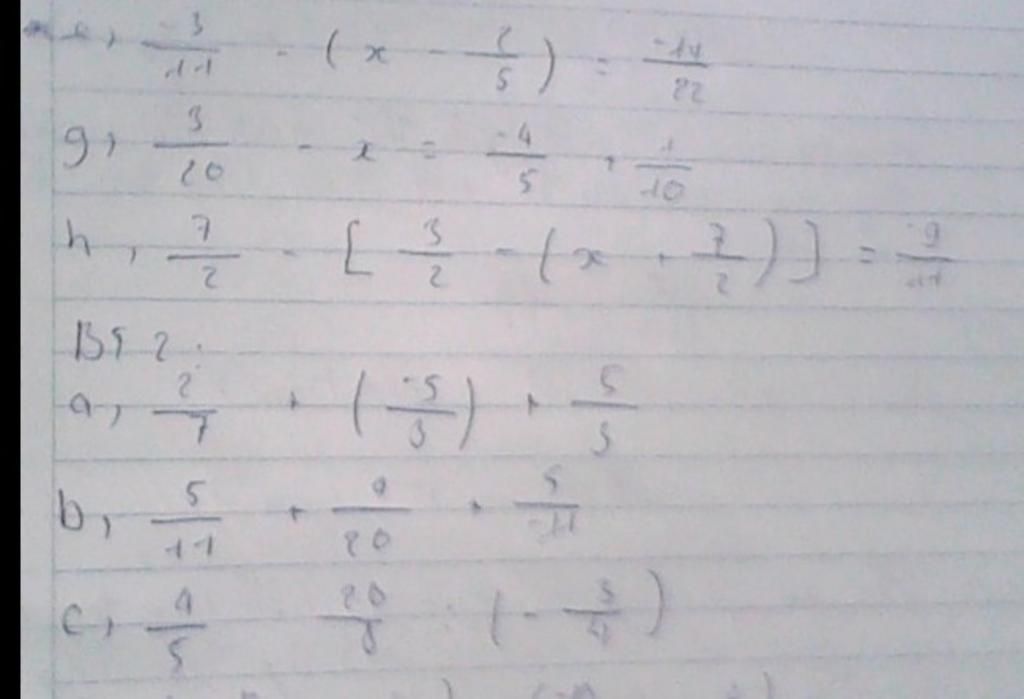 e, -3/11 - (x - 2/5) = -14/22
g, 3/20 - x = -4/5 + 1/10
h, 7/2 - [3/2 - (x + 7/2)] = 9/11
BT 2.
a, 2/7 + (-5/3) + 5/3
b, 5/11 + 9/20 + 5/-11
c, 4/5 20/8 (- 3/4)